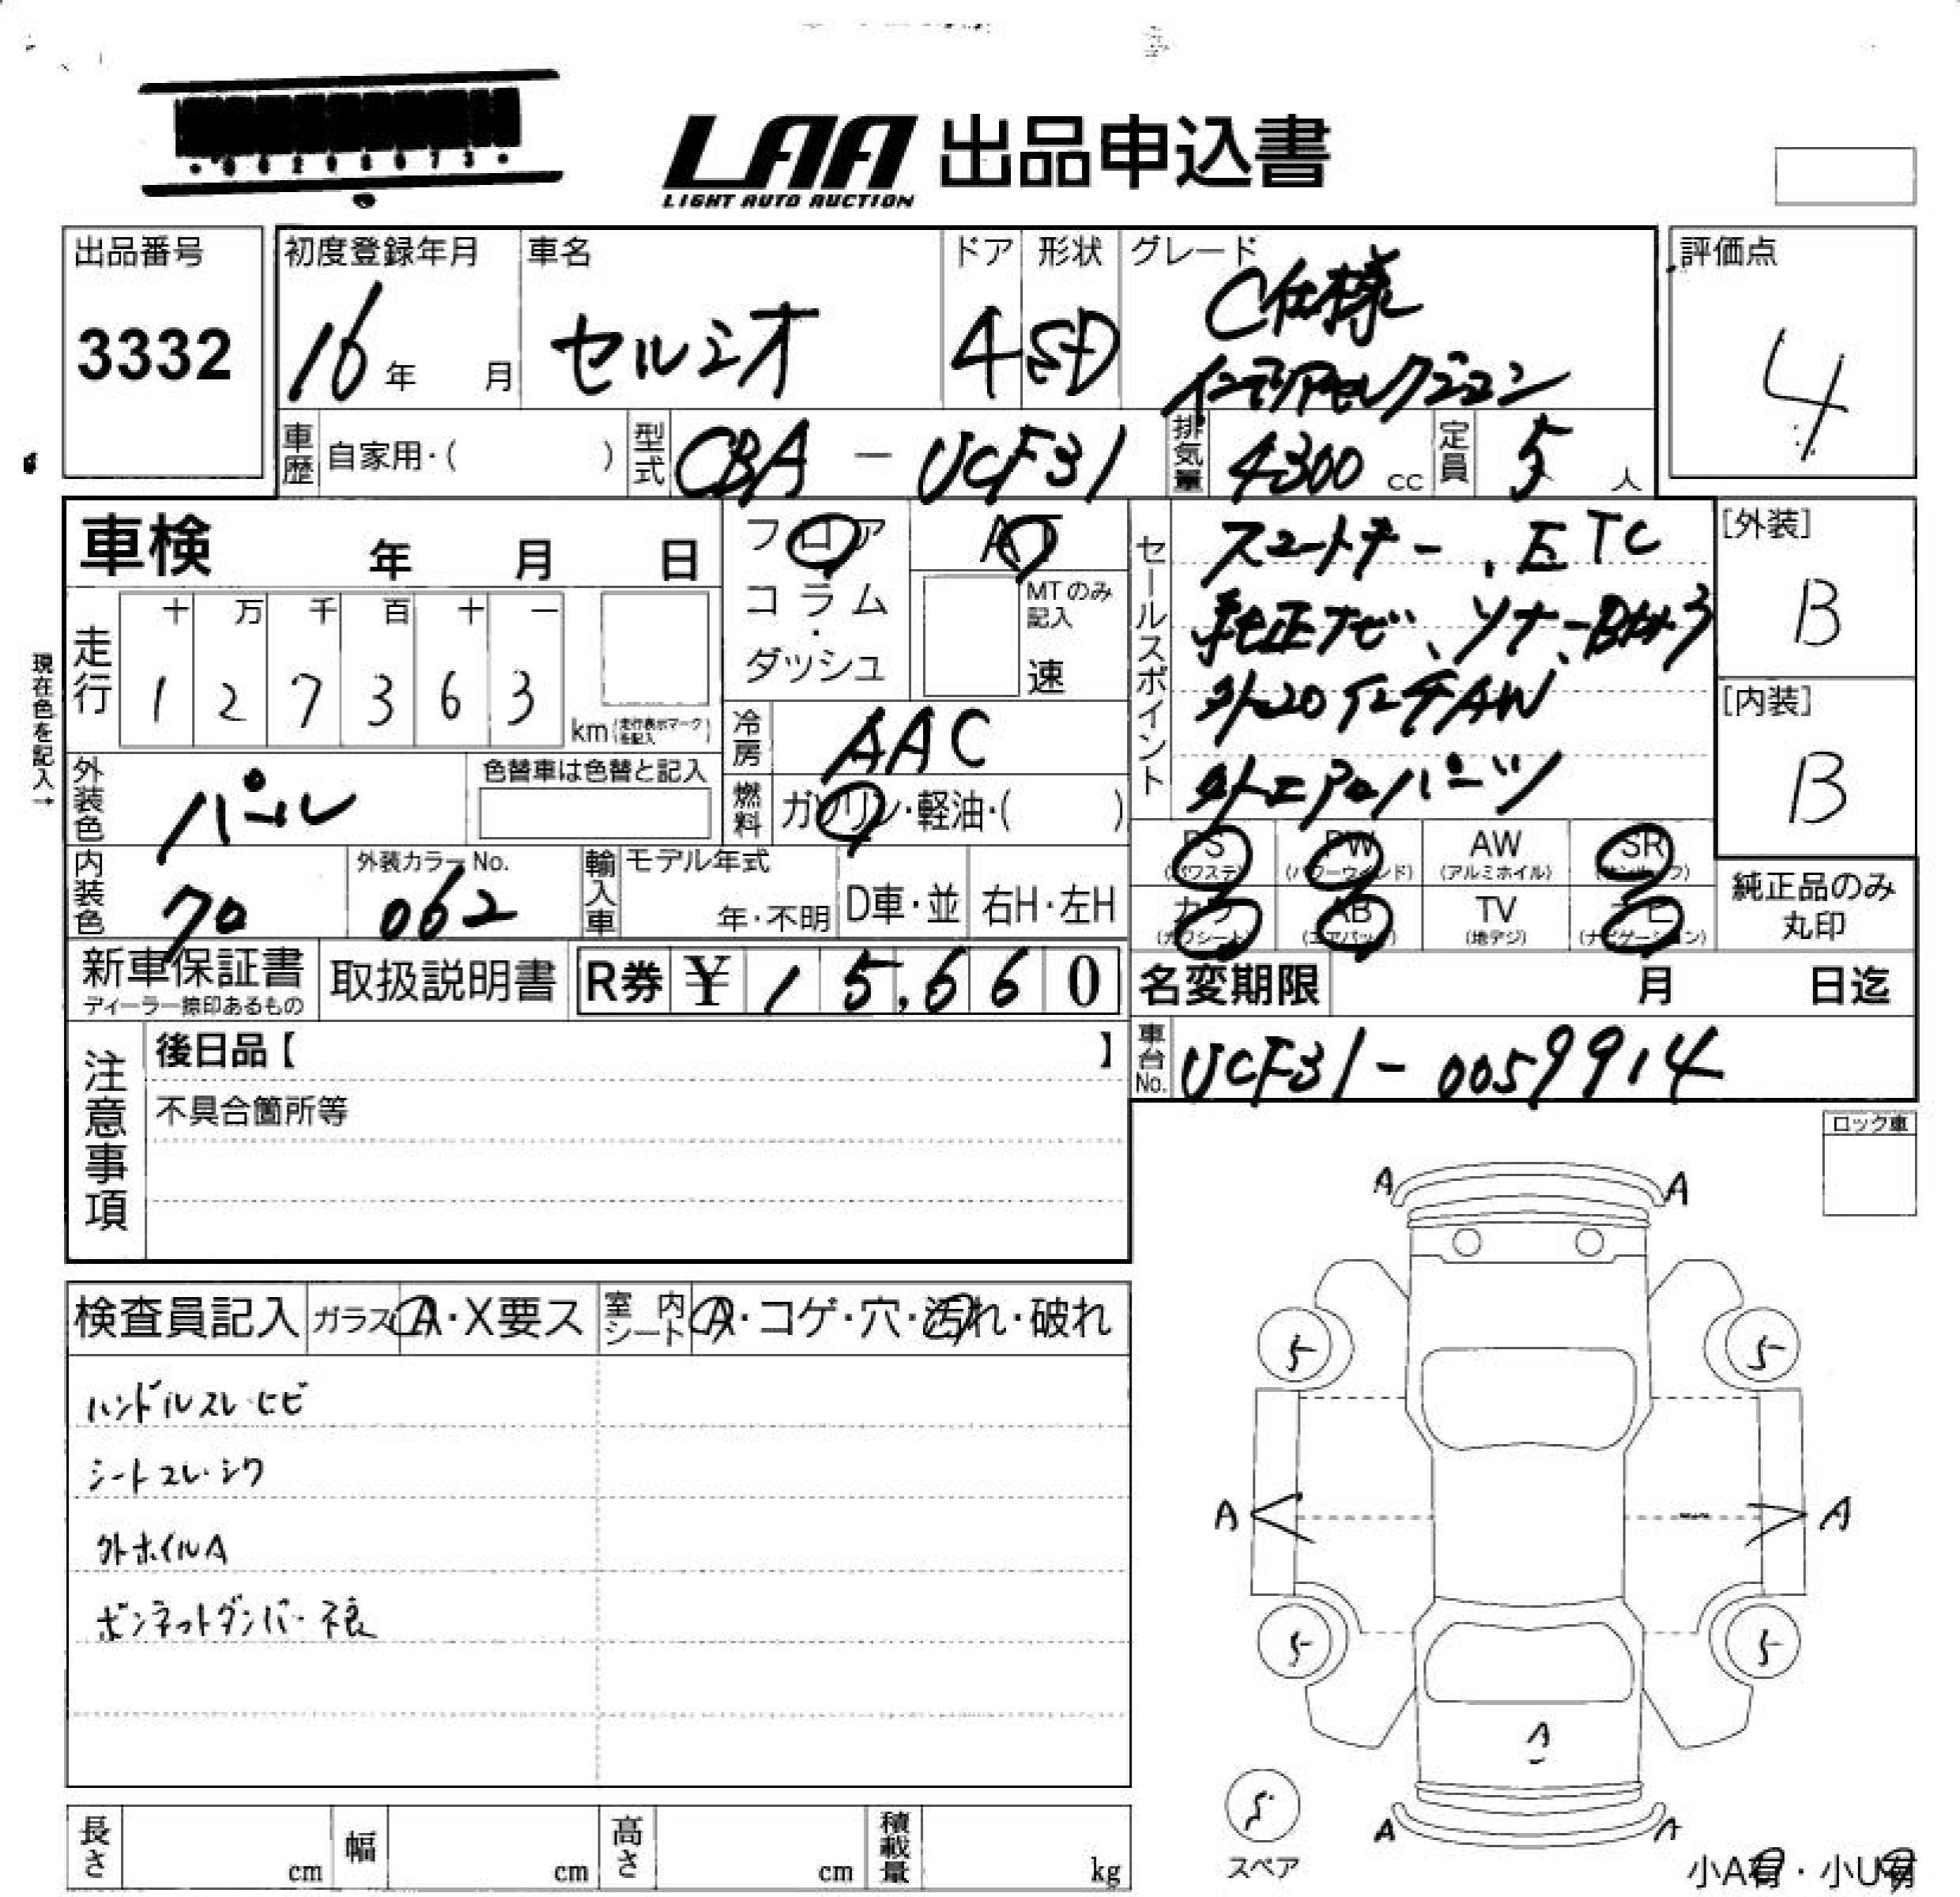 LAA 出品申込書
LIGHT AUTO AUCTION
出品番号
3332
初度登録年月
16年 月
車名
セルシオ
ドア
4
形状
SD
グレード
C仕様
インテリアセレクション
評価点
4
車歴 自家用・( )
型式 CBA - UCF31
排気量 4300 cc
定員 5 人
車検 年 月 日
フロア
コラム
・
ダッシュ
AT
MTのみ
記入
速
走行
十 万 千 百 十 一
1 2 7 3 6 3
km (走行表示マークを記入)
現在色を記入→
冷房 AAC
外装色 パール
色替車は色替と記入
燃料 ガソリン・軽油・( )
内装色 70
外装カラーNo.
062
輸入車 モデル年式
年・不明
D車・並
右H・左H
セールスポイント
スマートキー、ETC
純正ナビ、ソナー、Bカメラ
外20インチAW
外エアロパーツ
[外装]
B
[内装]
B
PS
(パワステ)
PW
(パワーウィンド)
AW
(アルミホイル)
SR
(サンルーフ)
カワ
(カワシート)
AB
(エアバッグ)
TV
(地デジ)
ナビ
(ナビゲーション)
純正品のみ
丸印
新車保証書
ディーラー捺印あるもの
取扱説明書
R券 ¥ 15,660
名変期限 月 日迄
注意事項
後日品【 】
不具合箇所等
車台No. UCF31-0059914
ロック車
検査員記入
ガラス A・X要ス
室内シート A・コゲ・穴・汚れ・破れ
ハンドルスレ・ヒビ
シートスレ・シワ
外ホイルA
ボンネットダンパー不良
A A
5 5
A A
5 5
A
5
スペア
A A
小A有・小U有
長さ cm
幅 cm
高さ cm
積載量 kg